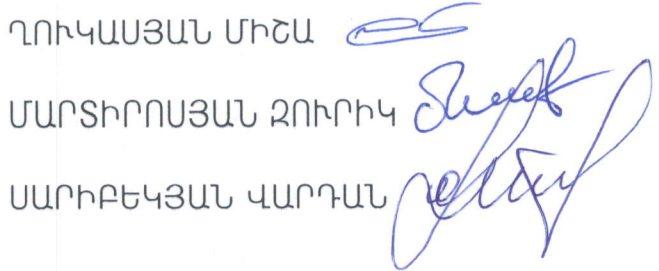 ՂՈՒԿԱՍՅԱՆ ՄԻՇԱ
ՄԱՐՏԻՐՈՍՅԱՆ ԶՈՒՐԻԿ
ՍԱՐԻԲԵԿՅԱՆ ՎԱՐԴԱՆ